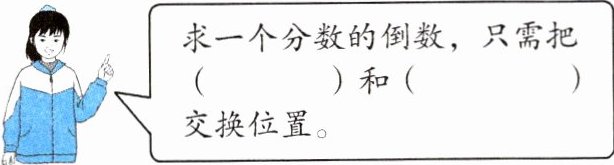 求一个分数的倒数，只需把
（　　　　）和（　　　　）
交换位置。